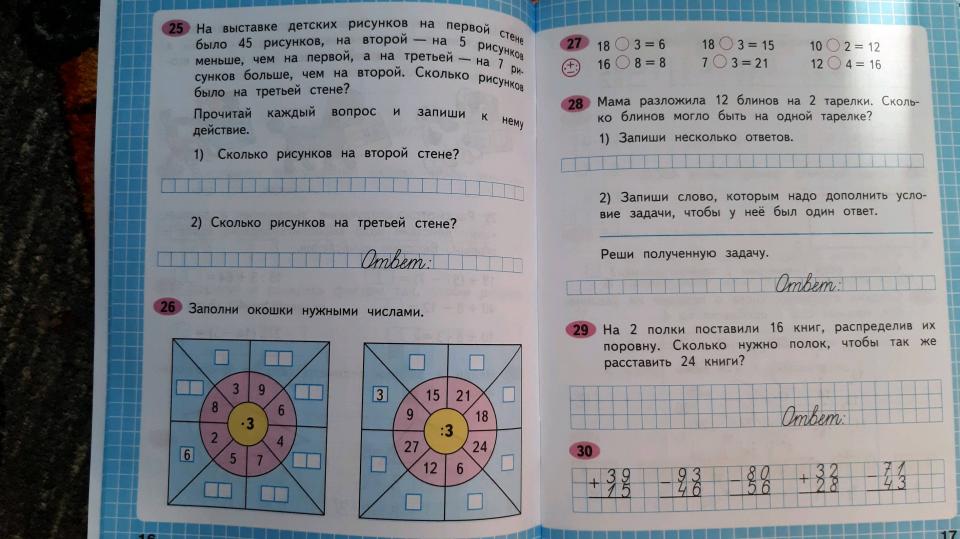 25 На выставке детских рисунков на первой стене
было 45 рисунков, на второй — на 5 рисунков
меньше, чем на первой, а на третьей — на 7 ри-
сунков больше, чем на второй. Сколько рисунков
было на третьей стене?
Прочитай каждый вопрос и запиши к нему
действие.
1) Сколько рисунков на второй стене?
2) Сколько рисунков на третьей стене?
Ответ:
26 Заполни окошки нужными числами.
3 9
8 6
·3
2 4
6
5 7
15 21
3
9 18
:3
27 24
12 6
27 18 ○ 3 = 6 18 ○ 3 = 15 10 ○ 2 = 12
16 ○ 8 = 8 7 ○ 3 = 21 12 ○ 4 = 16
28 Мама разложила 12 блинов на 2 тарелки. Сколь-
ко блинов могло быть на одной тарелке?
1) Запиши несколько ответов.
2) Запиши слово, которым надо дополнить усло-
вие задачи, чтобы у неё был один ответ.
Реши полученную задачу.
Ответ:
29 На 2 полки поставили 16 книг, распределив их
поровну. Сколько нужно полок, чтобы так же
расставить 24 книги?
Ответ:
30
+ 39 − 93 − 80 + 32 − 71
15 46 56 28 43
17